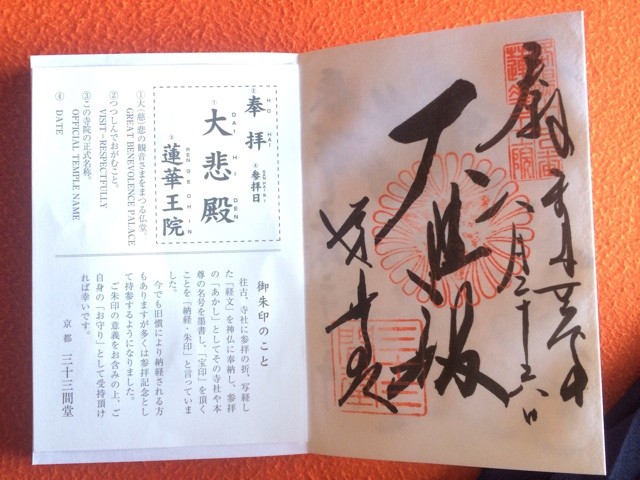 奉
八月二十六日
大悲殿
蓮華王院
② 奉拝
HO HAI
④ 参拝日
① 大悲殿
DA HI DEN
③ 蓮華王院
REN GE OH IN
①大慈悲の観音さまをまつる仏堂。
GREAT BENEVOLENCE PALACE
②つつしんでおがむこと。
VISIT-RESPECTFULLY
③この寺院の正式名称。
OFFICIAL TEMPLE NAME
④ DATE
御朱印のこと
往古、寺社に参拝の折、写経し
た「経文」を神仏に奉納し、参拝
の「あかし」としてその寺社や本
尊の名号を墨書し、「宝印」を頂く
ことを「納経・朱印」と言っていま
した。
今でも旧慣により納経される方
もありますが多くは参拝記念とし
て持参するようになりました。
ご朱印の意義をお含みの上、ご
自身の「お守り」として受持頂け
れば幸いです。
京都 三十三間堂